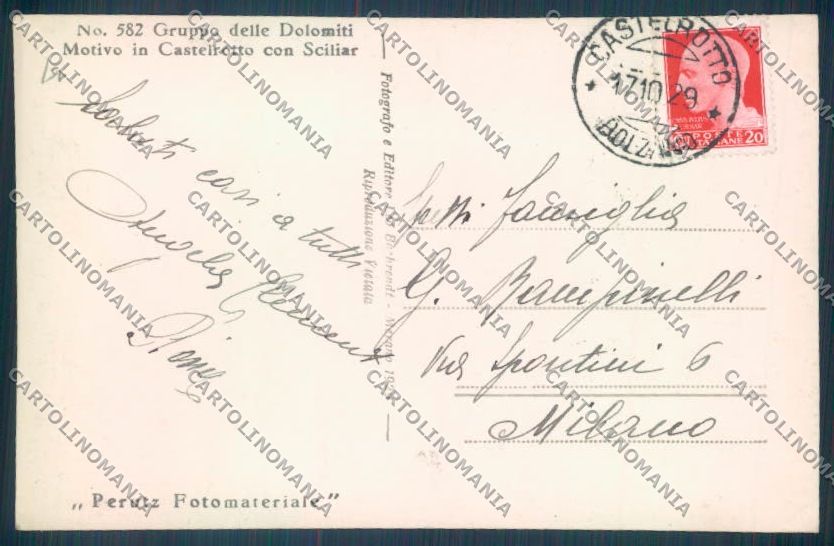 No. 582 Gruppo delle Dolomiti
Motivo in Castelrotto con Sciliar
Saluti cari a tutti
Angelia Clement
Fotografo e Editore
Merano
Riproduzione Vietata
CASTELROTTO
17.10.29
BOLZANO
POSTE
ITALIANE 20
Spett. Famiglia
G. Rampinelli
Via Spontini 6
Milano
„Perutz Fotomateriale"
CARTOLINOMANIA